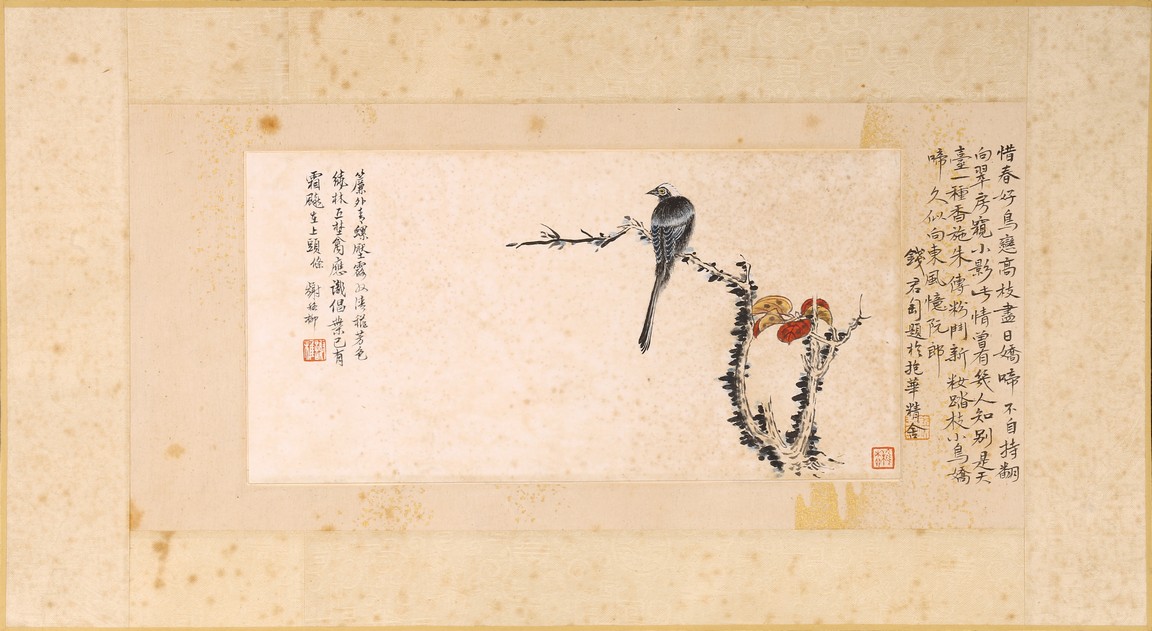 惜春好鳥戀高枝盡日嬌啼不自持翻
向翠房窺小影此情曾有幾人知別是天
臺一種香施朱傅粉鬥新妝踏枝小鳥嬌
啼久似向東風憶阮郎
錢君匋題於抱華精舍
簾外青螺壓露芳色
繞林五禽應識倡葉已有
霜飈生上頭條 謝稚柳